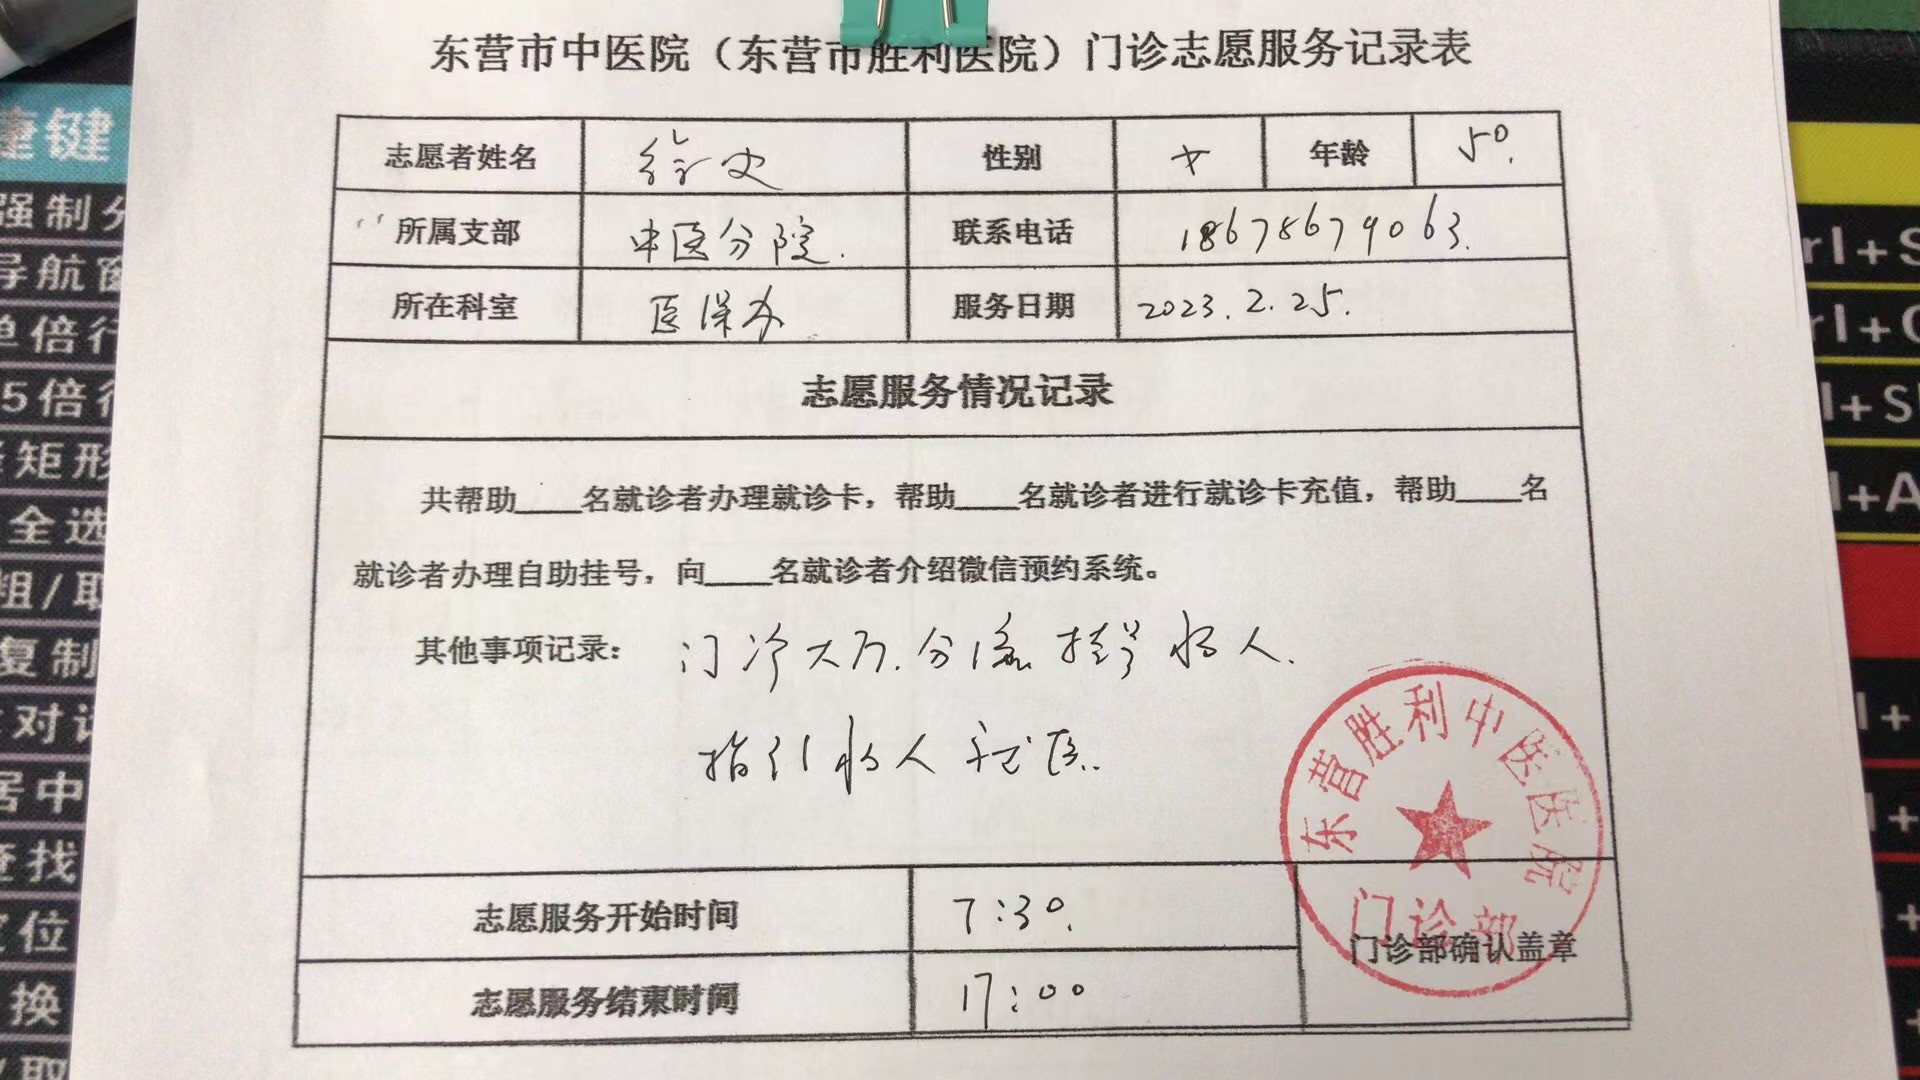 东营市中医院（东营市胜利医院）门诊志愿服务记录表
志愿者姓名 徐 性别 女 年龄 50.
所属支部 中医分院. 联系电话 18678679063.
所在科室 医保办 服务日期 2023.2.25.
志愿服务情况记录
共帮助____名就诊者办理就诊卡，帮助____名就诊者进行就诊卡充值，帮助____名
就诊者办理自助挂号，向____名就诊者介绍微信预约系统。
其他事项记录： 门诊大厅.分流挂号病人.
指引病人就医.
东营胜利中医医院
门诊部
志愿服务开始时间 7:30.
门诊部确认盖章
志愿服务结束时间 17:00
捷键
强制分
导航窗
单倍行
5倍行
矩形
全选
粗/取
复制
对话
居中
查找
定位
换
/取
rl+S
rl+C
l+S
l+A